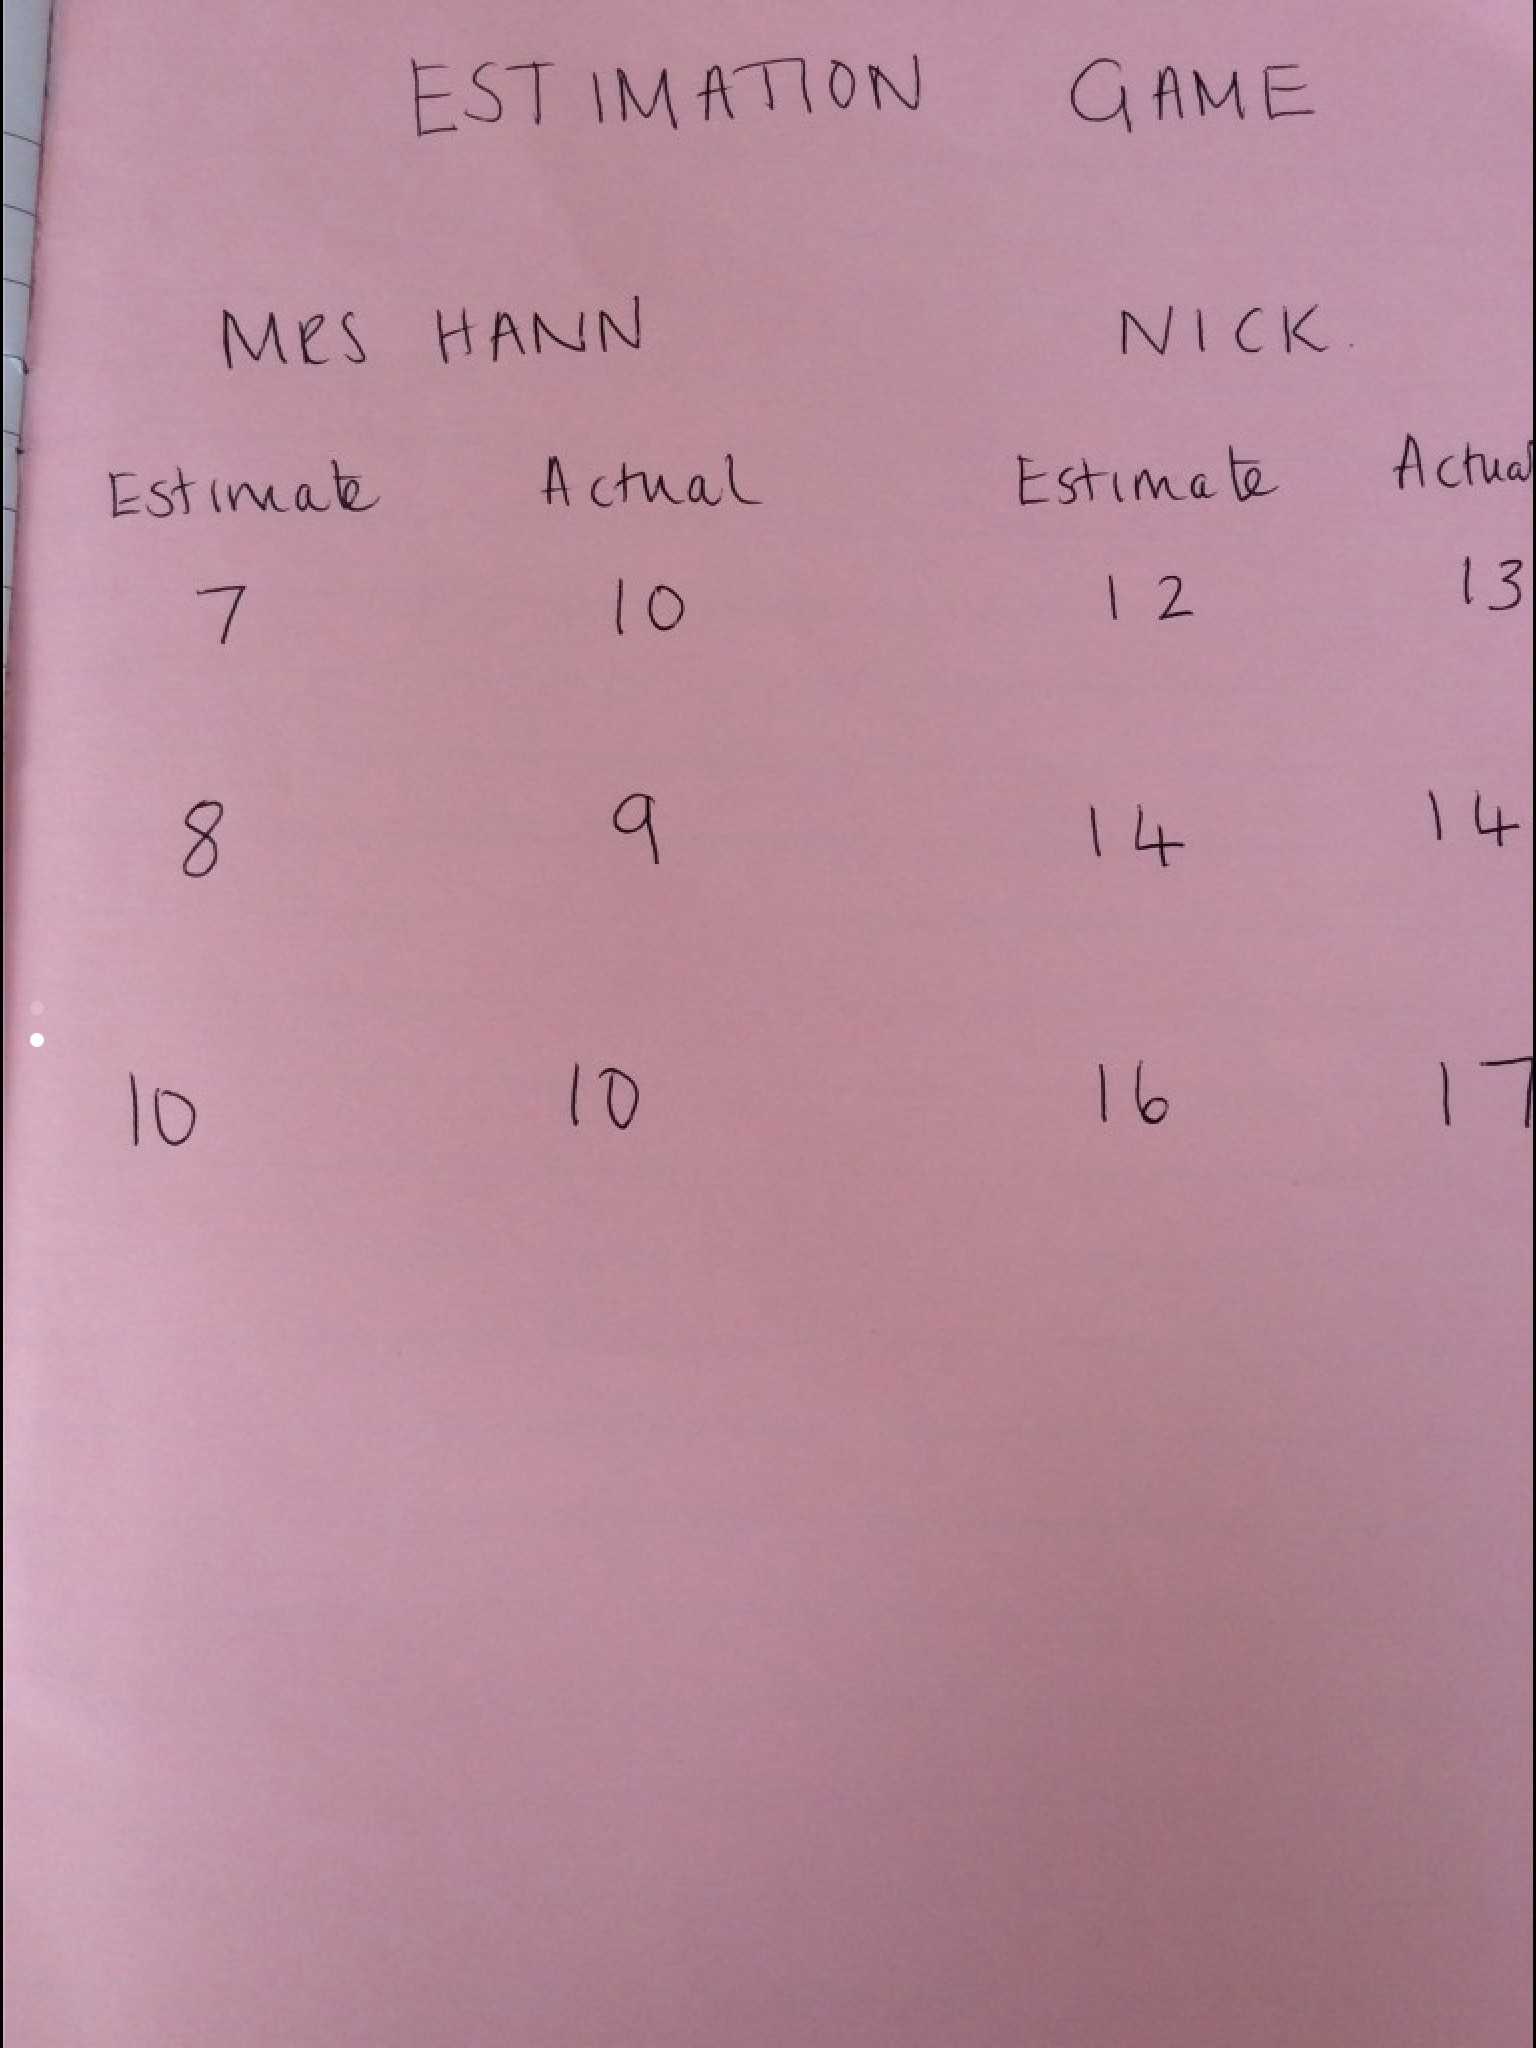 ESTIMATION GAME
MRS HANN NICK.
Estimate Actual Estimate Actual
7 10 12 13
8 9 14 14
10 10 16 17